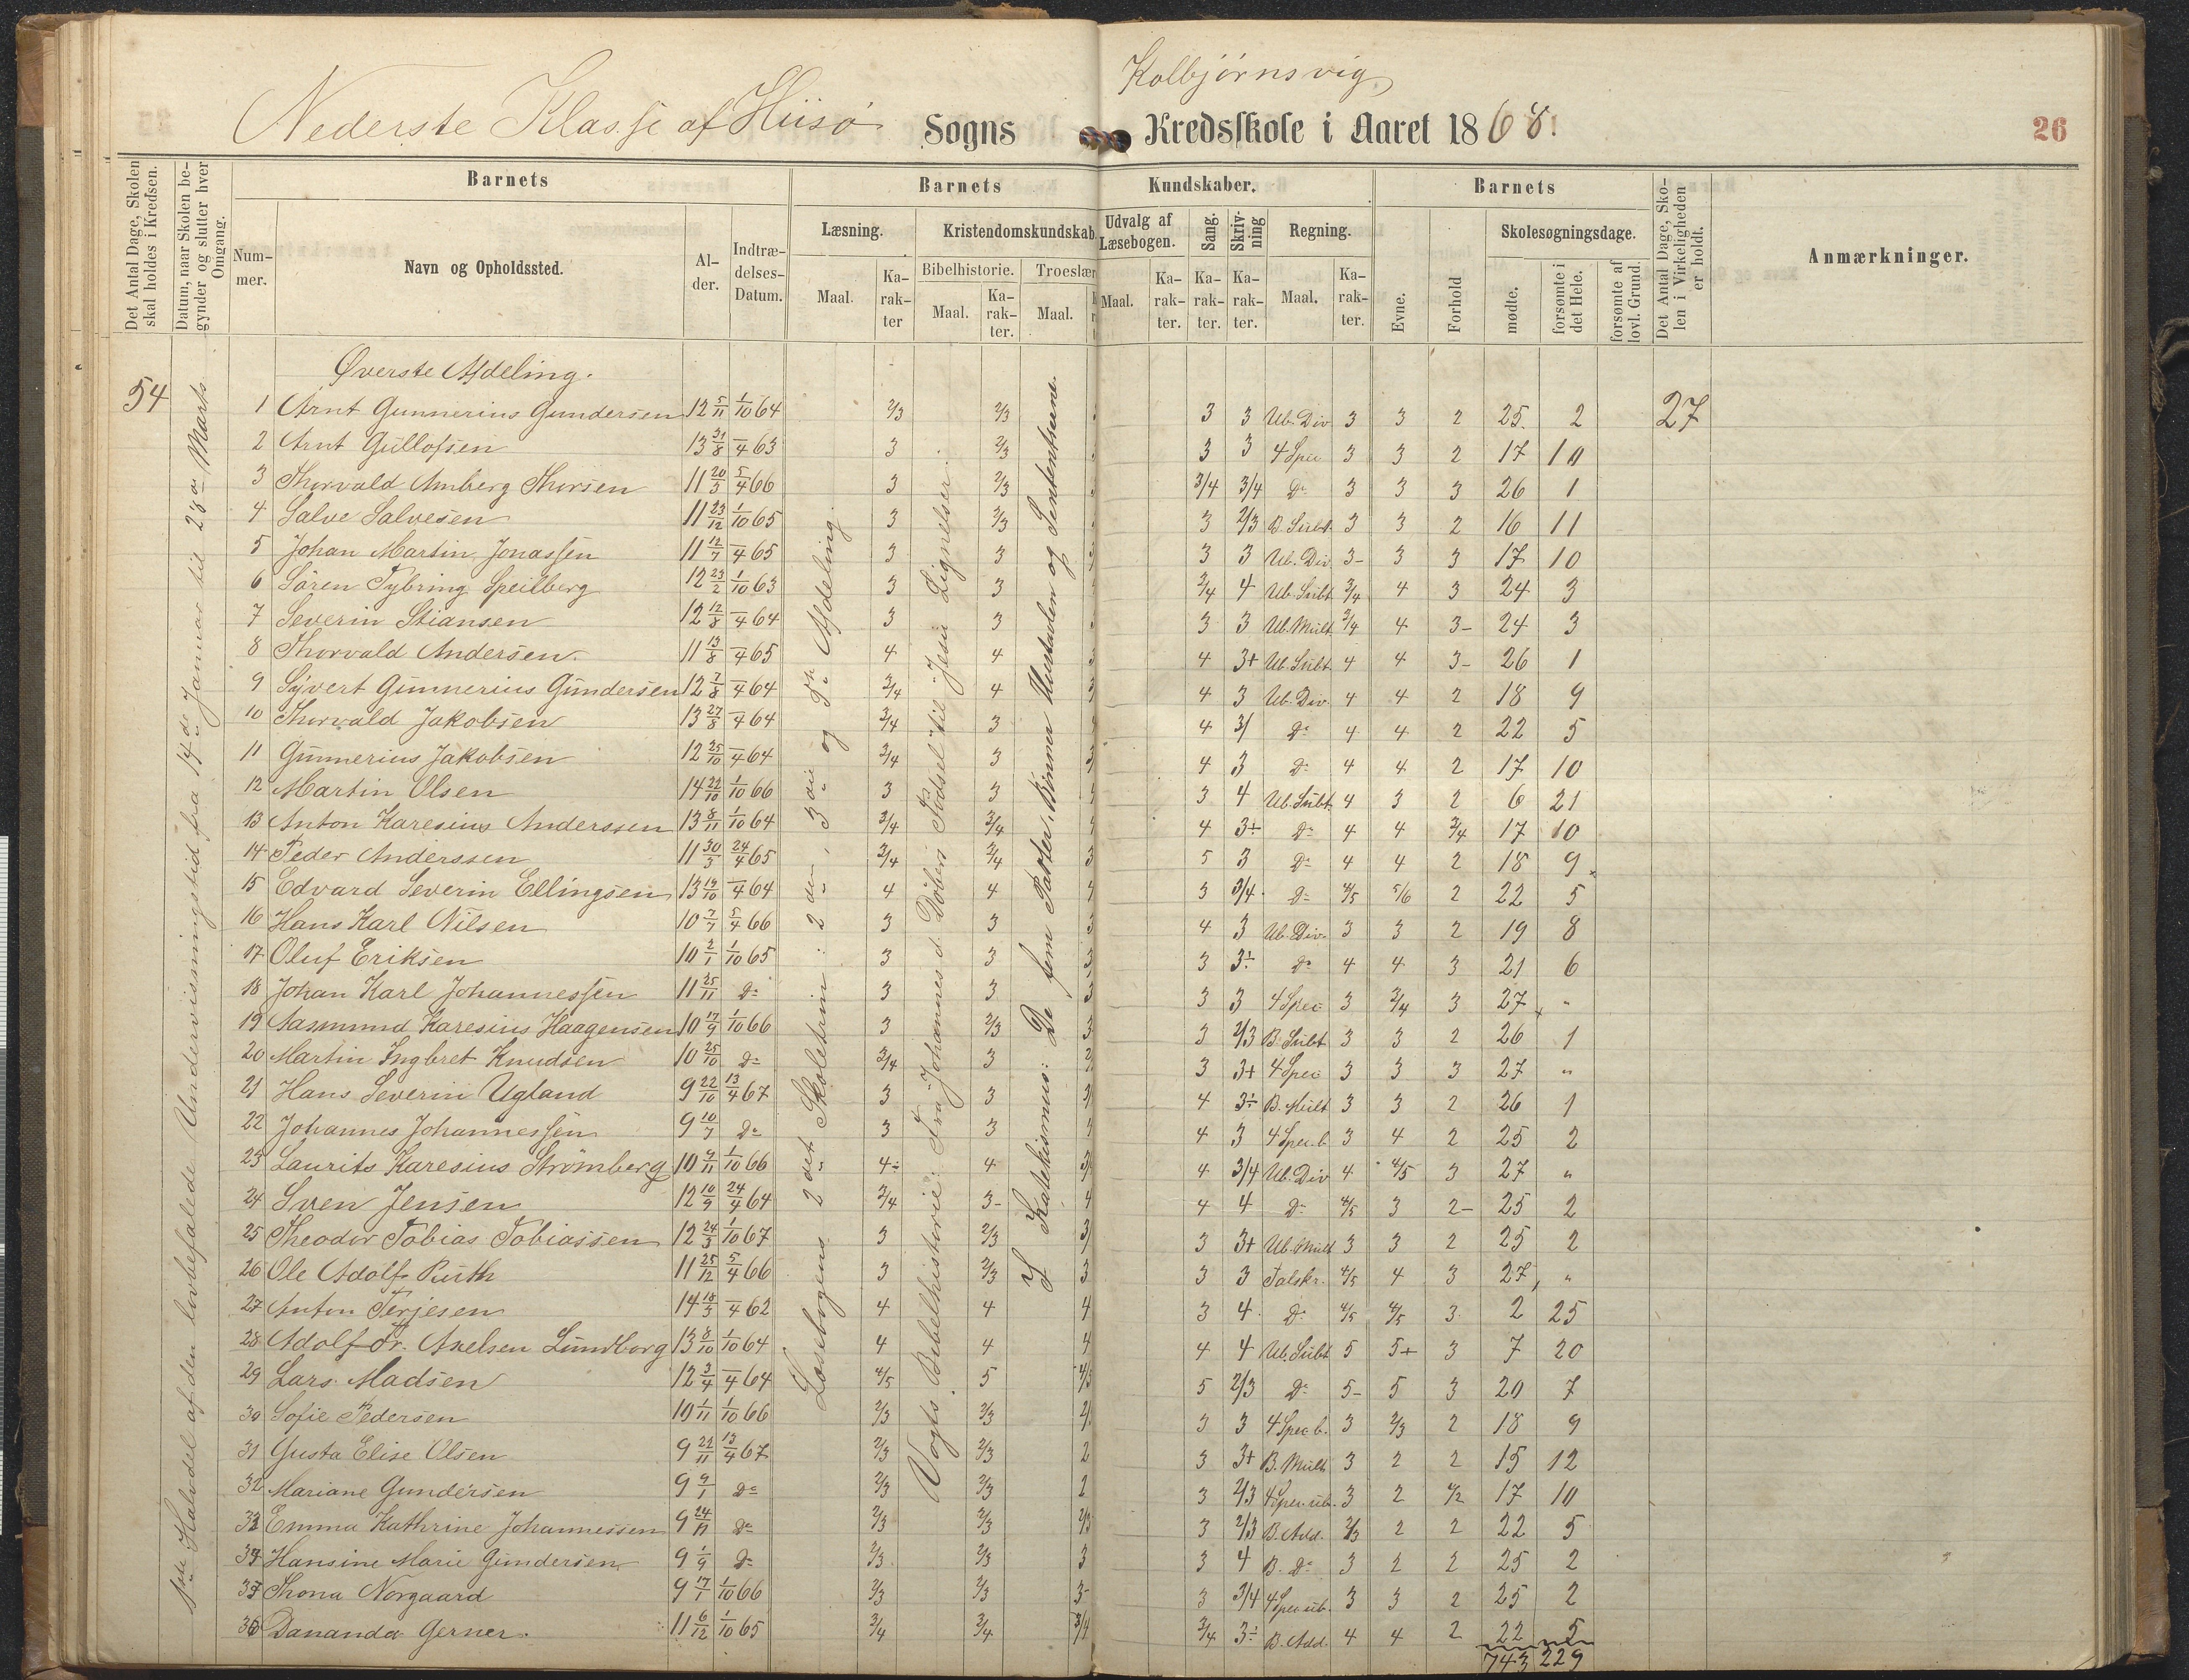 Kolbjørnsvig
Nederste Klasse af Hiisø Sogns Kredsskole i Aaret 1868
26
Det Antal Dage, Skolen skal holdes i Kredsen.
Datum, naar Skolen begynder og slutter hver Omgang.
Barnets
Barnets Kundskaber.
Barnets
Det Antal Dage, Skolen i Virkeligheden er holdt.
Anmærkninger.
Nummer.
Navn og Opholdssted.
Alder.
Indtrædelses-Datum.
Læsning.
Kristendomskundskab.
Udvalg af Læsebogen.
Sang.
Skrivning
Regning.
Evne.
Forhold
Skolesøgningsdage.
Bibelhistorie.
Troeslær
Maal.
Karakter
Maal.
Karakter.
Maal.
Maal.
Karakter.
Karakter.
Karakter.
Maal.
Karakter.
mødte.
forsømte i det Hele.
forsømte af lovl. Grund.
54
1ste Halvdel af den lovbefalede Undervisningstid fra 14de Januar til 28de Marts
Læsebogens 2det Skoletrin: 2den, 3die og 5te Afdeling.
Vogts Bibelhistorie: Fra Johannes d. Døbers Fødsel til Jesu Lignelser.
L Katekismus: De fem Parter, Bønner Hustavlen og Sententserne.
Øverste Afdeling.
1 Arnt Gunnerius Gundersen 12 5/11 1/10 64 2/3 2/3 3 3 Ub. Div 3 3 2 25 2 27
2 Arnt Gullofsen 13 31/8 – /4 63 3 2/3 3 3 4 Spec 3 3 2 17 10
3 Thorvald Amberg Thorsen 11 20/3 5/4 66 3 2/3 3/4 3/4 Do 3 3 3 26 1
4 Salve Salvesen 11 23/12 1/10 65 3 2/3 3 2/3 B. Subt. 3 3 2 16 11
5 Johan Martin Jonassen 11 12/7 – /4 65 3 3 3 3 Ub. Div. 3- 3 3 17 10
6 Søren Tybring Speilberg 12 23/2 1/10 63 3 3 3/4 4 Ub. Subt 3/4 4 3 24 3
7 Severin Stiansen 12 12/8 – /4 64 3 3 3 3 Ub. Mult. 3/4 4 3- 24 3
8 Thorvald Andersen. 11 13/8 – /4 65 4 4 4 3+ Ub. Subt. 4 4 3- 26 1
9 Syvert Gunnerius Gundersen 12 7/8 – /4 64 3/4 4 4 3 Ub. Div. 4 4 2 18 9
10 Thorvald Jakobsen 13 27/8 – /4 64 3/4 3 4 3/ Do 4 4 2 22 5
11 Gunnerius Jakobsen 12 25/10 – /4 64 3/4 3 4 3 Do 4 4 2 17 10
12 Martin Olsen 14 22/10 1/10 66 3 3 3 4 Ub. Subt. 4 3 2 6 21
13 Anton Karesius Anderssen 13 8/11 1/10 64 3/4 3/4 4 3÷ Do 4 4 3/4 17 10
14 Peder Anderssen 11 30/3 24/4 65 3/4 3/4 5 3 Do 4 4 2 18 9
15 Edvard Severin Ellingsen 13 19/10 – /4 64 4 4 3 3/4 Do 4/5 5/6 2 22 5
16 Hans Karl Nilsen 10 7/7 5/4 66 3 3 4 3 Ub. Div. 3 3 2 19 8
17 Oluf Eriksen 10 2/1 1/10 65 3 3 3 3÷ Do 4 4 3 21 6
18 Johan Karl Johannessen 11 25/11 Do 3 3 3 3 4 Spec 3 3/4 3 27 "
19 Aasmund Karesius Haagensen 10 17/9 1/10 66 3 2/3 3 2/3 B. Subt 3 3 2 26 1
20 Martin Ingbret Knudsen 10 25/10 Do 3/4 3 3 3+ 4 Spec 3 3 3 27 "
21 Hans Severin Ugland 9 22/10 13/4 67 3 3 4 3÷ B. Mult 3 3 2 26 1
22 Johannes Johannessen 9 10/7 Do 3 3 4 3 4 Spec. b. 3 4 2 25 2
23 Laurits Karesius Strømberg 10 9/11 1/10 66 4÷ 4 4 3/4 Ub. Div 4 4/5 3 27 "
24 Sven Jensen 12 10/9 24/4 64 3/4 3- 4 4 Do 4/5 3 2- 25 2
25 Theodor Tobias Tobiassen 12 24/3 1/10 67 3 2/3 3 3+ Ub. Mult 3 3 2 25 2
26 Ole Adolf Ruth 11 25/12 5/4 66 3 2/3 3 3 3 Talskr. 4/5 4 3 27 "
27 Anton Terjesen 14 18/3 – /4 62 4 4 4 3 4 Do 4/5 4/5 3 2 25
28 Adolf Fr. Axelsen Lundborg 13 8/10 1/10 64 4 4 4 4 4 Ub. Subt 5 5+ 3 7 20
29 Lars Madsen 12 3/4 – /4 64 4/5 5 4/5 5 2/3 Do 5- 5 3 20 7
30 Sofie Pedersen 10 1/11 1/10 66 2/3 2/3 3 3 4 Spec b. 3 2/3 2 18 9
31 Gusta Elise Olsen 9 21/11 13/4 67 2/3 2/3 2 3 3+ B. Mult 3 2 2 15 12
32 Mariane Gundersen 9 9/1 Do 2/3 2/3 2 3 2/3 4 Spec. ub. 3 2 1/2 17 10
33 Emma Kathrine Johannessen 9 24/11 Do 2/3 2/3 2/3 3 2/3 B. Add. 2/3 2 2 22 5
34 Hansine Marie Gundersen 9 1/9 Do 2/3 2/3 3 3 4 B. Do 3 2 2 25 2
35 Thona Norgaard 9 17/1 1/10 66 2/3 2/3 3- 3 3/4 4 Spec. ub. 3 3 2 25 2
36 Dananda Gerner. 11 6/12 1/10 65 3/4 3/4 3/4 3/4 3÷ B. Add. 4 4 2 22 5
743 229